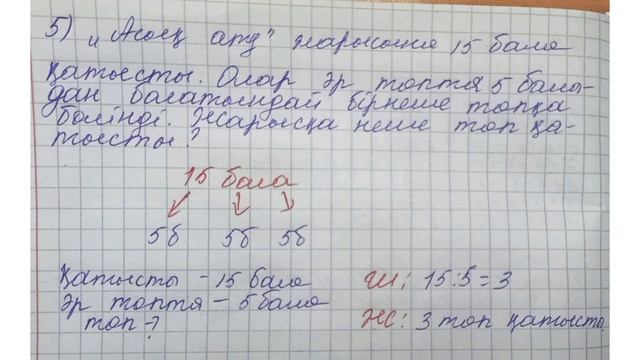 5) „Асық ату" жарысына 15 бала
қатысты. Олар әр топта 5 бала-
дан болатындай бірнеше топқа
бөлінді. Жарысқа неше топ қа-
тысты?
15 бала
5б 5б 5б
Қатысты - 15 бала
Әр топта - 5 бала
топ - ?
Ш: 15:5=3
Ж: 3 топ қатысты.